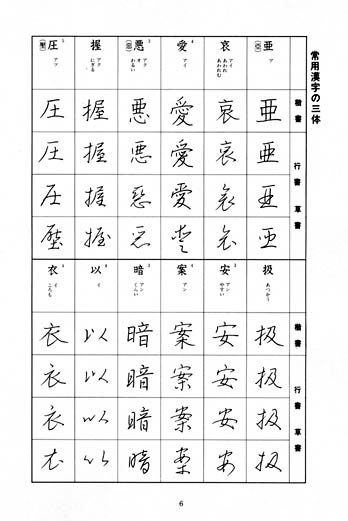 常用漢字の三体
楷書 行書 草書
亜(亞) ア
亜 亜 亜 亜
哀 アイ あわれ あわれむ
哀 哀 哀 哀
愛 アイ
愛 愛 愛 愛
悪(惡) アク オ わるい
悪 悪 惡 悪
握 アク にぎる
握 握 握 握
圧(壓) アツ
圧 圧 圧 壓
楷書 行書 草書
扱 あつかう
扱 扱 扱 扱
安 アン やすい
安 安 安 安
案 アン
案 案 案 案
暗 アン くらい
暗 暗 暗 暗
以 イ
以 以 以 以
衣 イ ころも
衣 衣 衣 衣
6